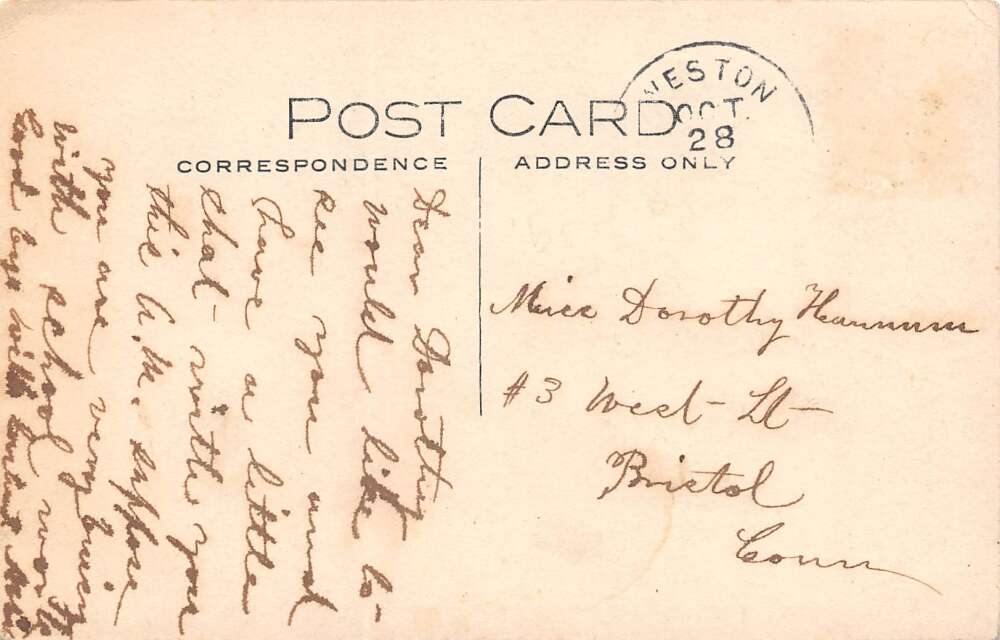 POST CARD
CORRESPONDENCE
ADDRESS ONLY
WESTON
OCT.
28
Dear Dorothy
would like to
see you and
have a little
chat with you
this A.M. suppose
you are very busy
with school work
Good bye with
Miss Dorothy Hannum
#3 West St
Bristol
Conn